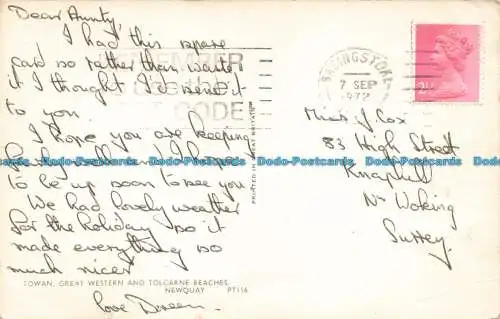 Dear Aunty,
I had this spare
card so rather than waste
it I thought I'd send it
to you.
I hope you are keeping
fairly well and I hope
to be up soon to see you
We had lovely weather
for the holiday so it
made everything so
much nicer
love Doreen.
TOWAN, GREAT WESTERN AND TOLCARNE BEACHES,
NEWQUAY PT116
PRINTED IN GREAT BRITAIN
REMEMBER
CODE
BASINGSTOKE
7 SEP
1972
2½P
Miss J Cox
83 High Street
Knaphill
Nr Woking
Surrey.
Dodo-Postcards Dodo-Postcards Dodo-Postcards Dodo-Postcards